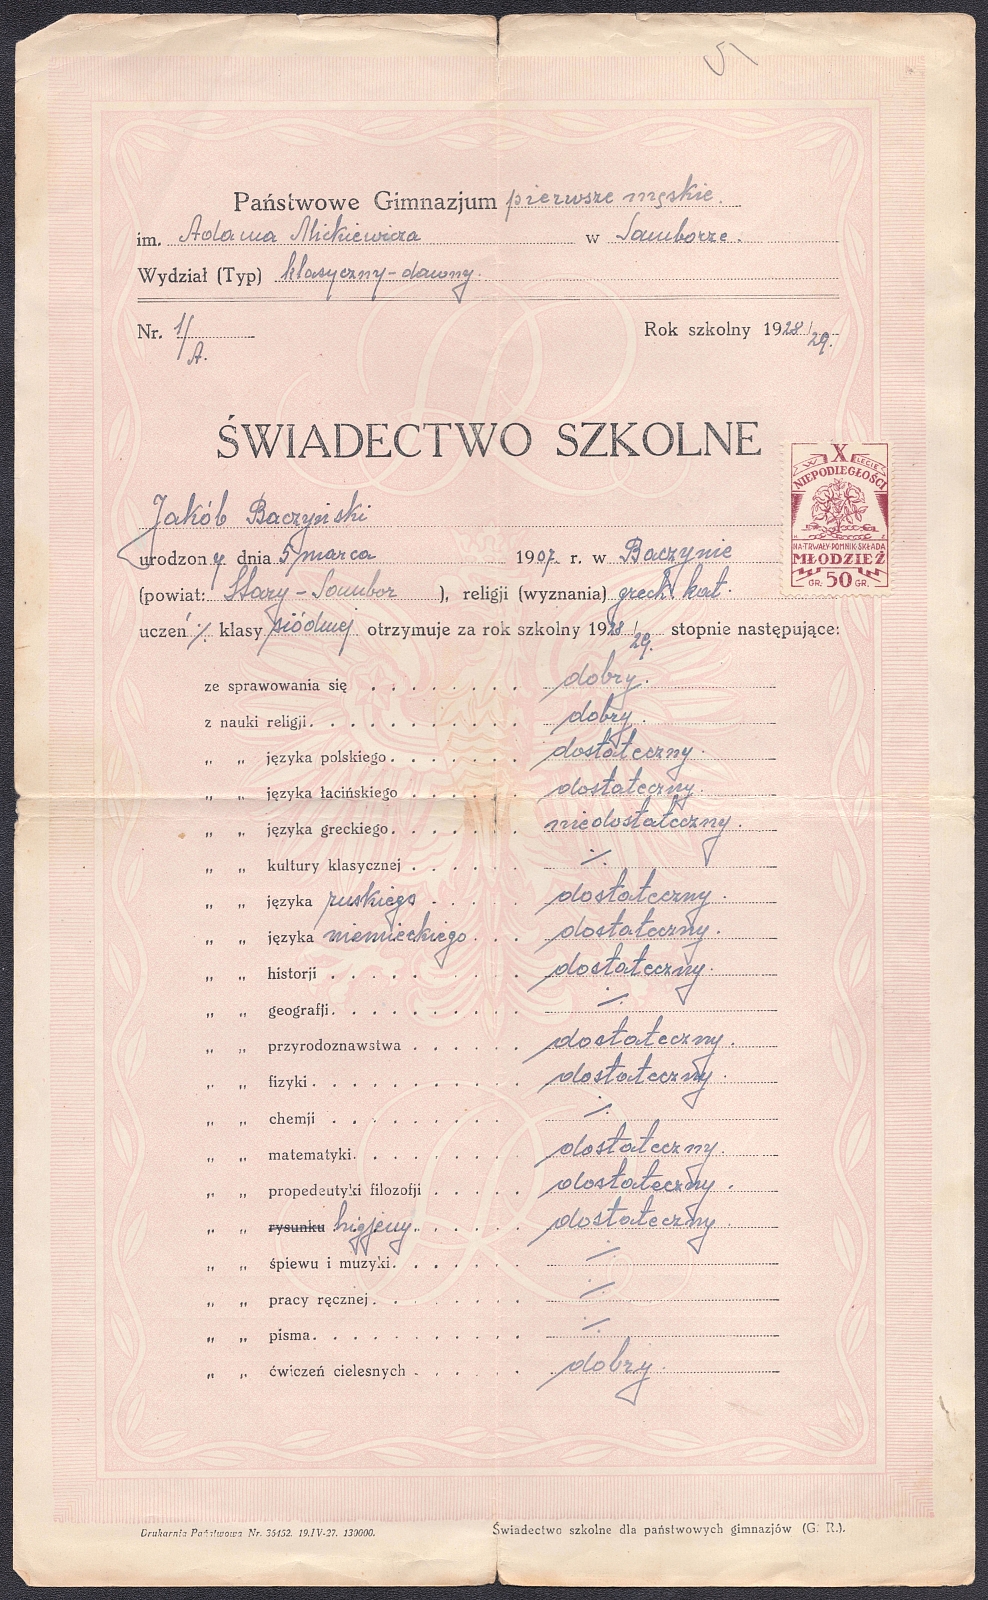 Państwowe Gimnazjum pierwsze męskie.
im. Adama Mickiewicza w Samborze.
Wydział (Typ) klasyczny-dawny.
Nr. 1/A. Rok szkolny 1928/29.
ŚWIADECTWO SZKOLNE
W X LECIE
NIEPODIEGŁOŚCI
NA·TRWAŁY·POMNIK·SKŁADA
MŁODZIEŻ
GR. 50 GR.
Jakób Baczyński
urodzony dnia 5 marca 1907. r. w Baczynie
(powiat: Stary-Sambor ), religji (wyznania) grech kat.
uczeń ./. klasy siódmej otrzymuje za rok szkolny 1928/29. stopnie następujące:
ze sprawowania się . . . . . . . . dobry.
z nauki religji. . . . . . . . . dobry.
„ „ języka polskiego. . . . . . . dostateczny.
„ „ języka łacińskiego . . . . . . dostateczny.
„ „ języka greckiego. . . . . . . niedostateczny.
„ „ kultury klasycznej . . . . . . ./.
„ „ języka ruskiego . . . . . dostateczny.
„ „ języka niemieckiego . . . dostateczny.
„ „ historji . . . . . . . . . dostateczny.
„ „ geografji. . . . . . . . . ./.
„ „ przyrodoznawstwa . . . . . . dostateczny.
„ „ fizyki. . . . . . . . . . dostateczny.
„ „ chemji . . . . . . . . . ./.
„ „ matematyki. . . . . . . . dostateczny.
„ „ propedeutyki filozofji . . . . . dostateczny.
„ „ rysunku higjeny. . . . . . dostateczny.
„ „ śpiewu i muzyki. . . . . . . ./.
„ „ pracy ręcznej. . . . . . . . ./.
„ „ pisma. . . . . . . . . . ./.
„ „ ćwiczeń cielesnych . . . . . . dobry.
Drukarnia Państwowa Nr. 35452. 19.IV-27. 130000. Świadectwo szkolne dla państwowych gimnazjów (G. R.).